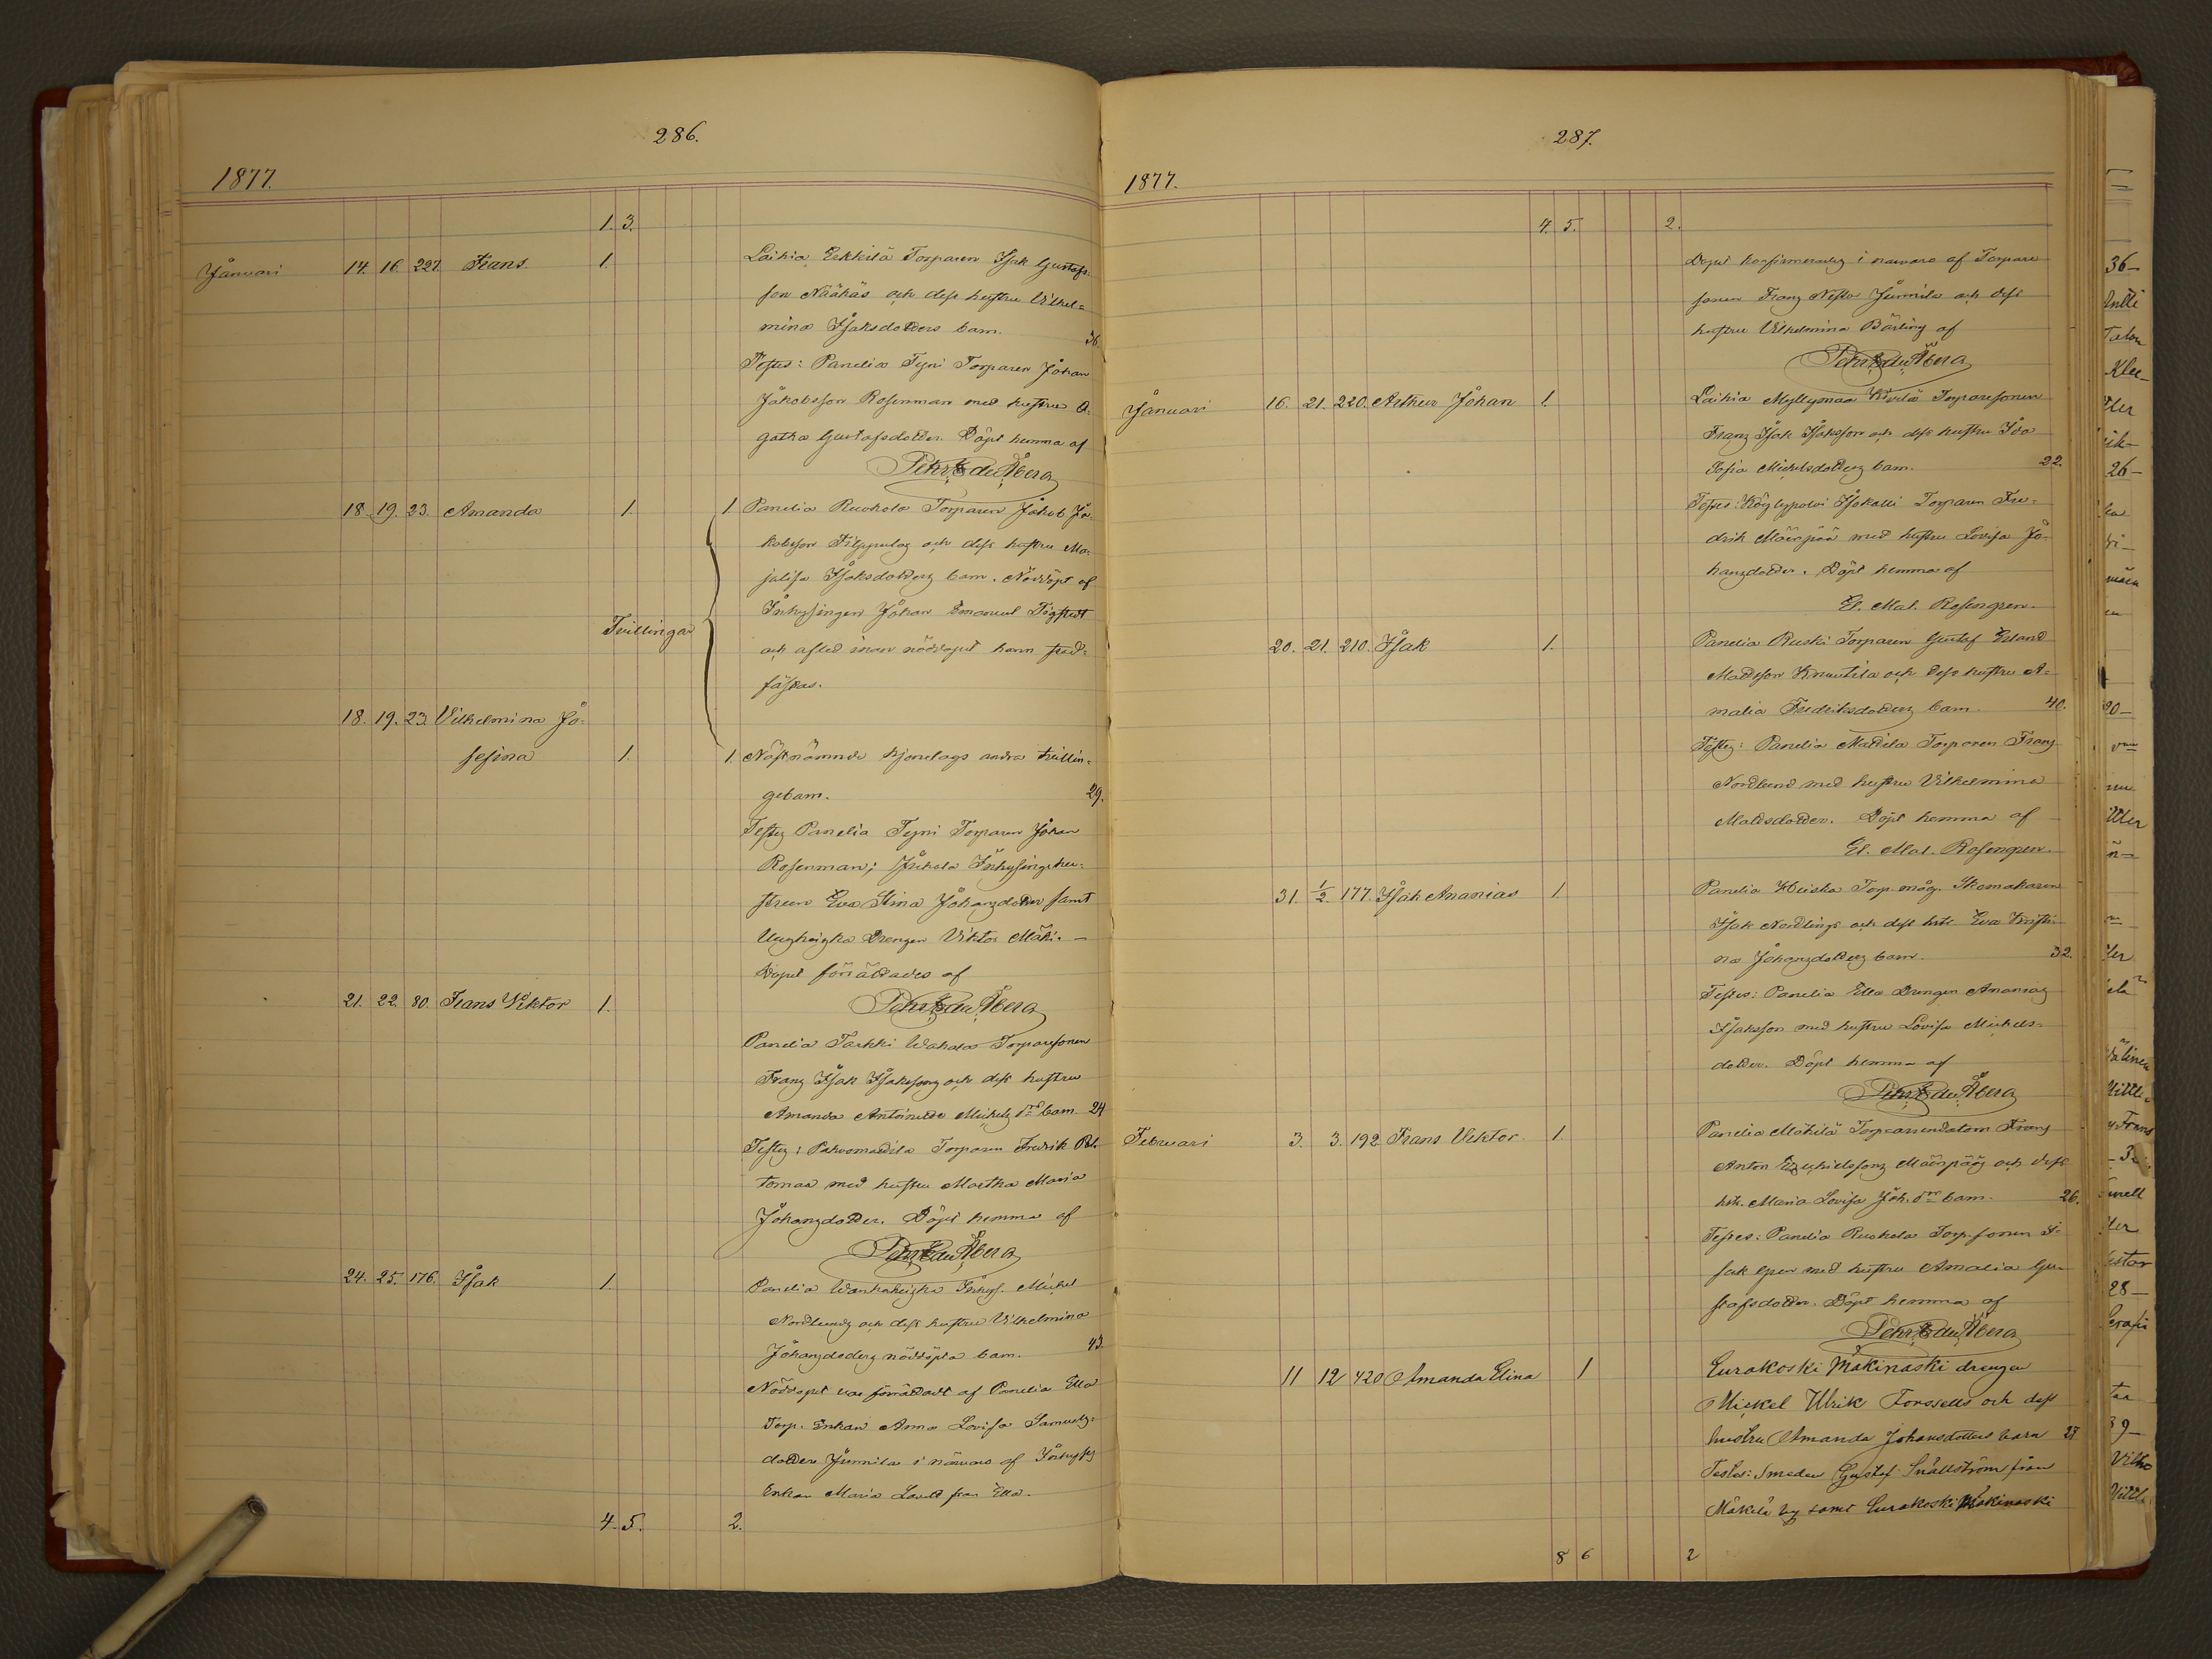 286.
1877.
1. 3.
Januari 14. 16. 227. Frans. 1. Laihia Eekkilä Torparen Isak Gustafs-
son Näähäs och dess hustru Vilhel-
mina Isaksdotters barn. 36.
Testes: Panelia Tyni Torparen Johan
Jakobsson Rosenman med hustru A-
gatha Gustafsdotter. Döpt hemma af
Petr Edu Åberg
18. 19. 23. Amanda 1. 1 Panelia Ruohola Torparen Jakob Ja-
kobsson Filppulas och dess hustru Ma-
jalisa Isaksdotters barn. Nöddöpt af
Inhysingen Johan Emanuel
Tvillingar
och afled innan nöddopet hann stad-
fästas.
18. 19. 23. Vilhelmina Jo-
sefina 1. 1. Nästnämnde hjonelags andra tvillin-
gebarn. 29.
Testes Panelia Tyni Torparen Johan
Rosenman; Inhysingehu-
strun Eva Stina Johansdotter samt
Drengen Viktor Mäki. —
Dopet förrättades af
21. 22. 80. Frans Viktor 1. Petr Edu Åberg
Panelia Tarkki Torparesonen
Frans Isak Isakssons och dess hustru
Amanda Antoinette Michels drs barn. 24
Testes: Torparen Fredrik
med hustru Martha Maria
Johansdotter. Döpt hemma af
Petr Edu Åberg
24. 25. 176. Isak 1. Panelia Inhys. Michel
Nordlunds och dess hustru Vilhelmina
Johansdoters nöddöpta barn. 43.
Nöddopet var förrättadt af Panelia Ella
Torp. Enkan Anna Lovisa Samuels-
dotter Junnila i närvaro af Inhyses
Enkan Maria från Ella.
4. 5. 2.
287.
1877.
4. 5. 2.
Dopet konfirmerades i narvaro af Torpare
sonen Frans Nestor Junnila och dess
hustru Vilhelmina Bärling af
Petr Edu Åberg
Januari 16. 21. 220. Arthur Johan 1. Laihia Myllymaa Torparesonen
Frans Isak Isaksson och dess hustru Ida
Sofia Michelsdotters barn. 22.
Testes: Torparen Fre-
drik Määrpää med hustru Lovisa Jo-
hansdotter. Döpt hemma af
El. Mat. Rosengren.
20. 21. 210. Isak 1. Panelia Ruski Torparen Gustaf Erland
Mattsson Knuutila och dess hustru A-
malia Fredriksdotters barn. 40.
Testes: Panelia Mattila Torparen Frans
Nordlund med hustru Vilhelmina
Mattsdotter. Döpt hemma af
El. Mat. Rosengren.
31. 1/2. 177. Isak Ananias 1. Panelia Heiska Torp. måg. Skomakaren
Isak Nordlings och dess hstr. Eva Kristi-
na Johansdotters barn. 32.
Testes: Panelia Ella Drengen Ananias
Isaksson med hustru Lovisa Michels-
dotter. Döpt hemma af
Petr Edu Åberg
Februari 3. 3. 192 Frans Viktor 1. Panelia Mäkilä Torparrendatorn Frans
Anton Määrpääs och dess
hstr. Maria Lovisa Joh. drs barn. 26.
Testes: Panelia Ruohola Torp. sonen I-
sak Gren med hustru Amalia Gu-
stafsdotter. Döpt hemma af
Petr Edu Åberg
11 12 420 Amanda Elina 1 Eurakoski Mäkinaski drengen
Mickel Ulrik Forssells och dess
hustru Amanda Johansdotters barn 27
Testes: Smeden Gustaf Snällström från
Mäkelä by samt Eurakoski Mäkinaski
8 6 2